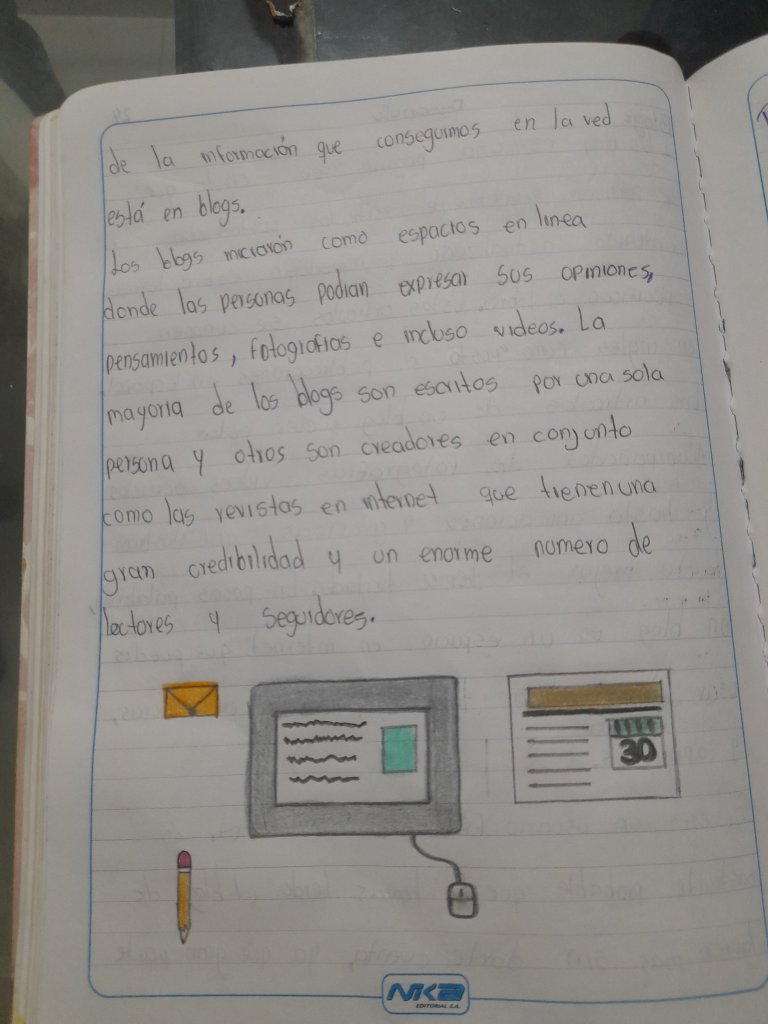 de la información que conseguimos en la red
está en blogs.
Los blogs iniciarón como espacios en linea
donde las personas podian expresar sus opiniones,
pensamientos, fotografias e incluso videos. La
mayoria de los blogs son escritos por una sola
persona y otros son creadores en conjunto
como las revistas en internet que tienen una
gran credibilidad y un enorme numero de
lectores y seguidores.
30
NKB
EDITORIAL S.A.